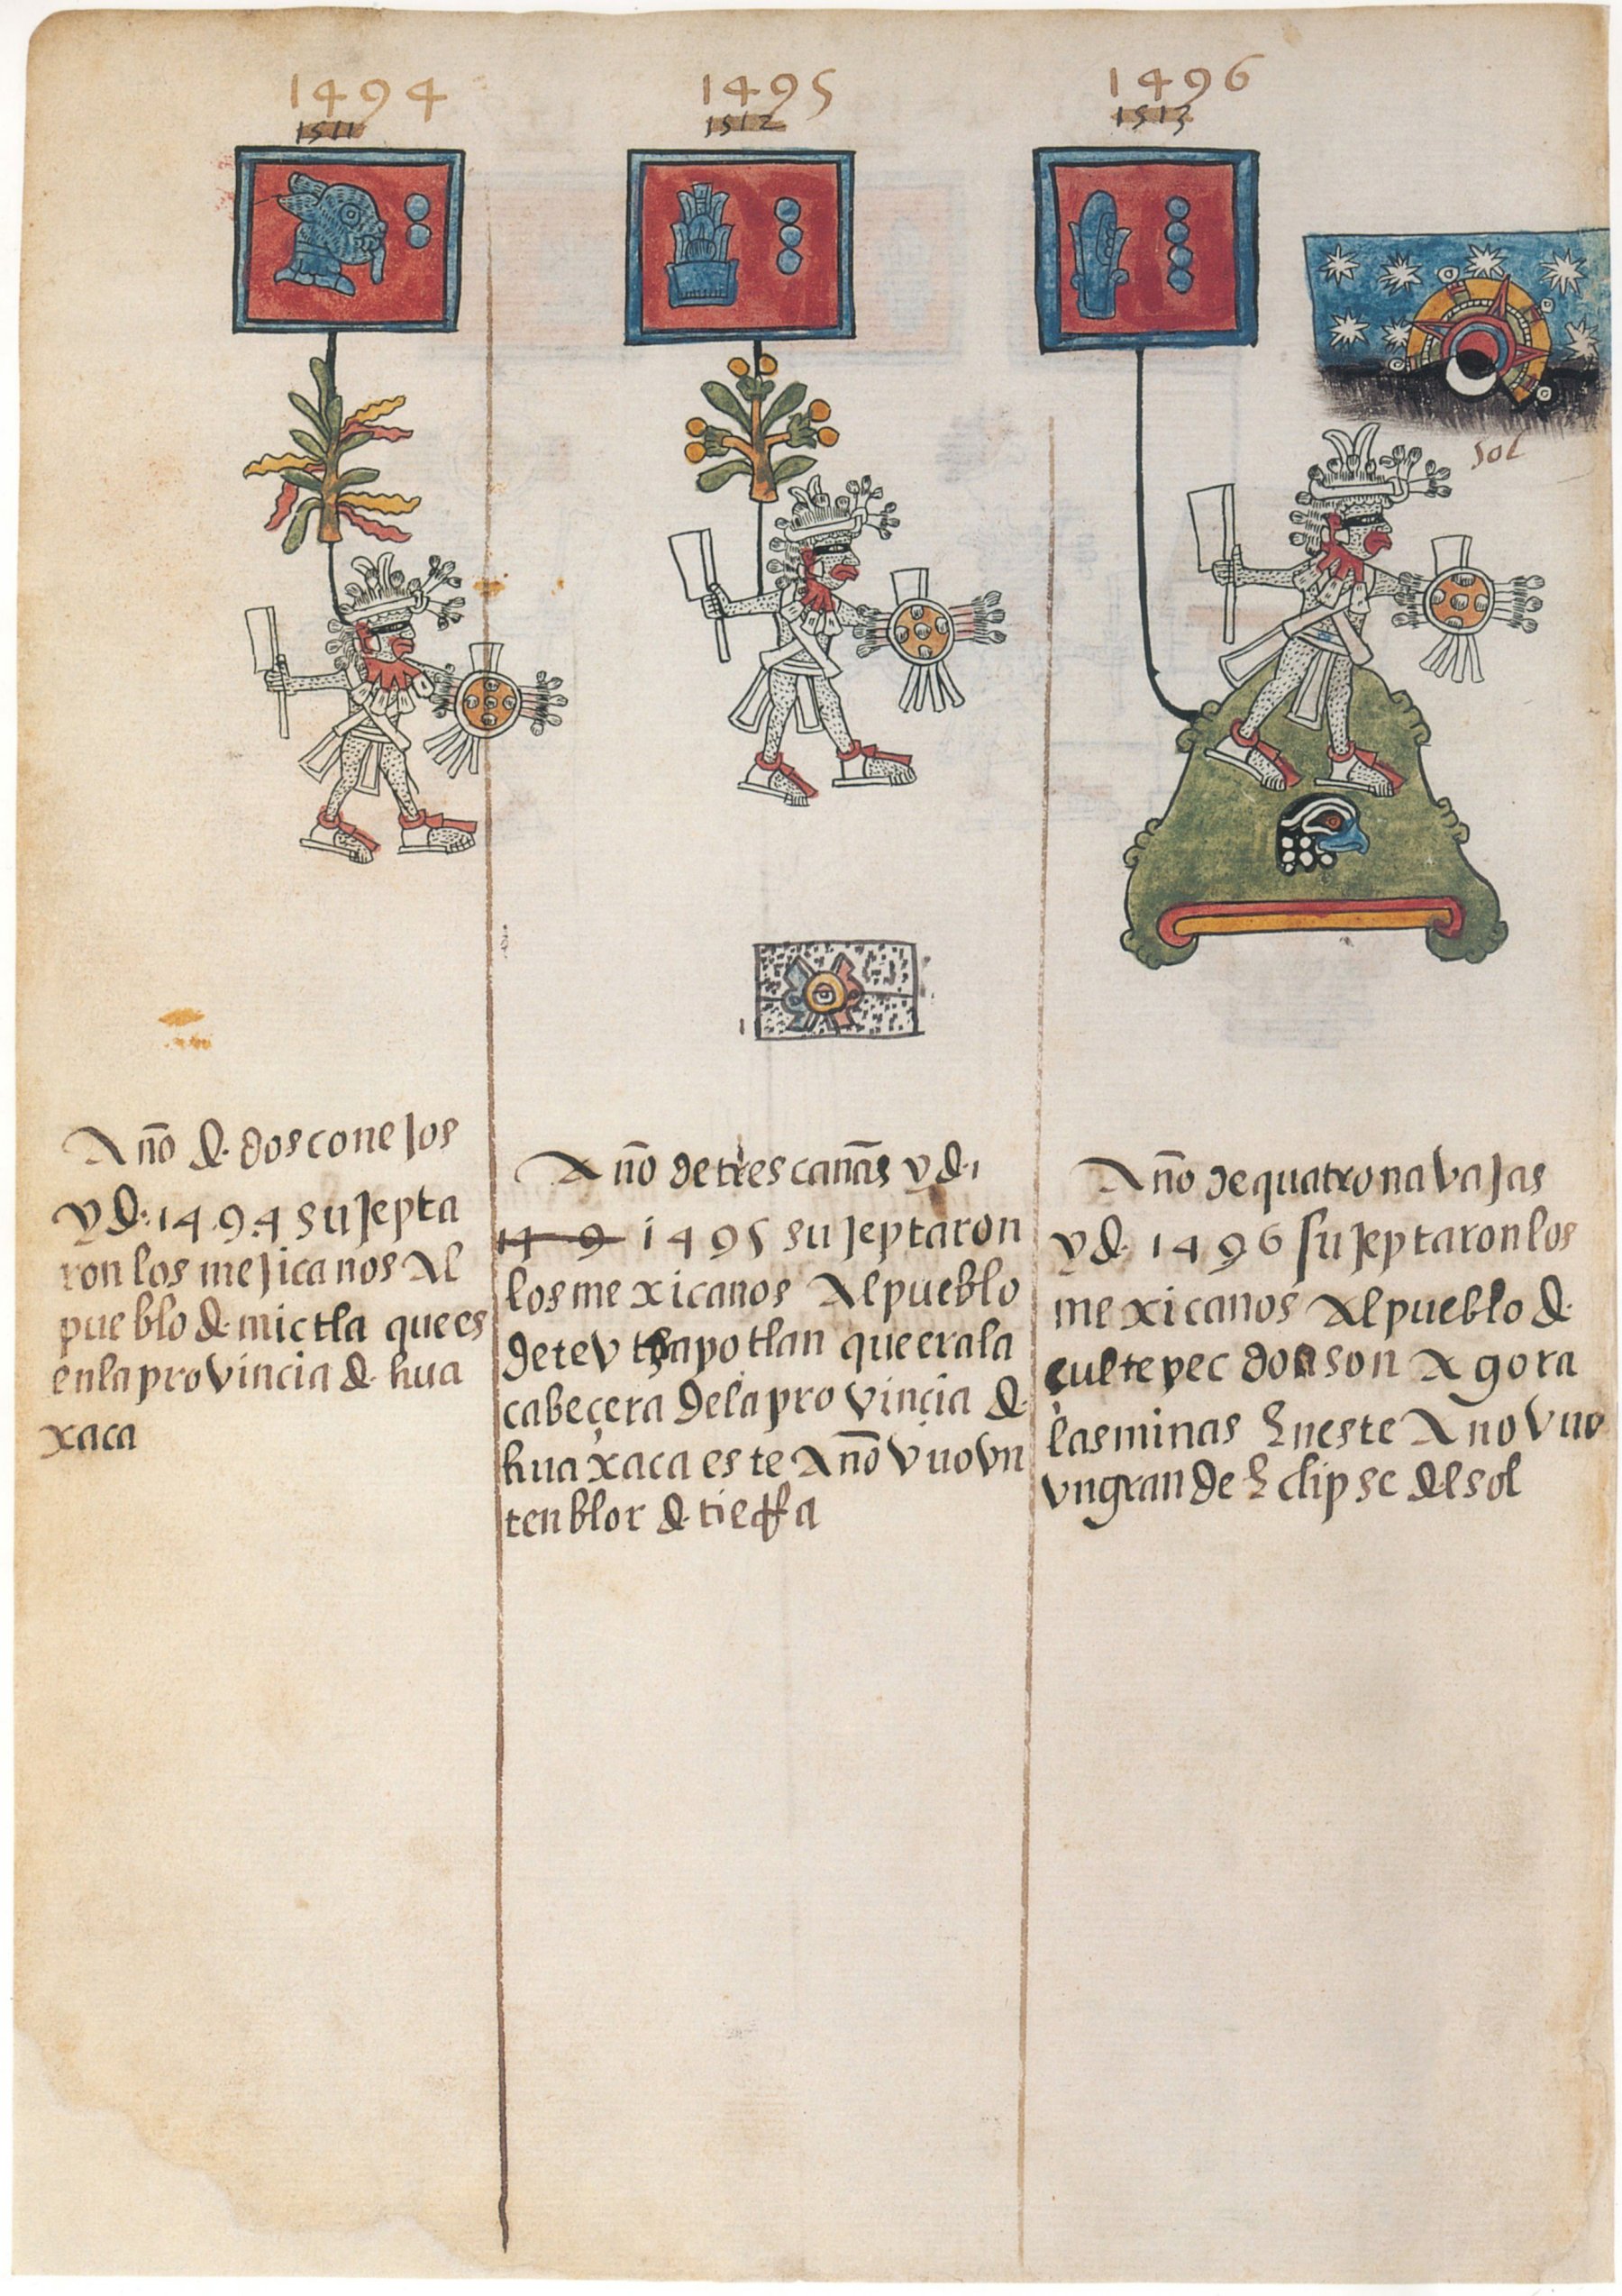 1494
1511
1495
1512
1496
1513
sol
Año d. dos conejos
y d. 1494 sujepta
ron los mejicanos al
pueblo d. mictla que es
en la provincia d. hua
xaca
Año de tres cañas y d. 1
14 9 1495 sujeptaron
los mexicanos al pueblo
de teutzapotlan que era la
cabeçera de la provinçia d.
huaxaca este año vuo vn
tenblor d. tierra
Año de quatro navajas
y d. 1496 sujeptaron los
mexicanos al pueblo d.
çultepec don son agora
las minas en este año vuo
vn grande eclipse del sol